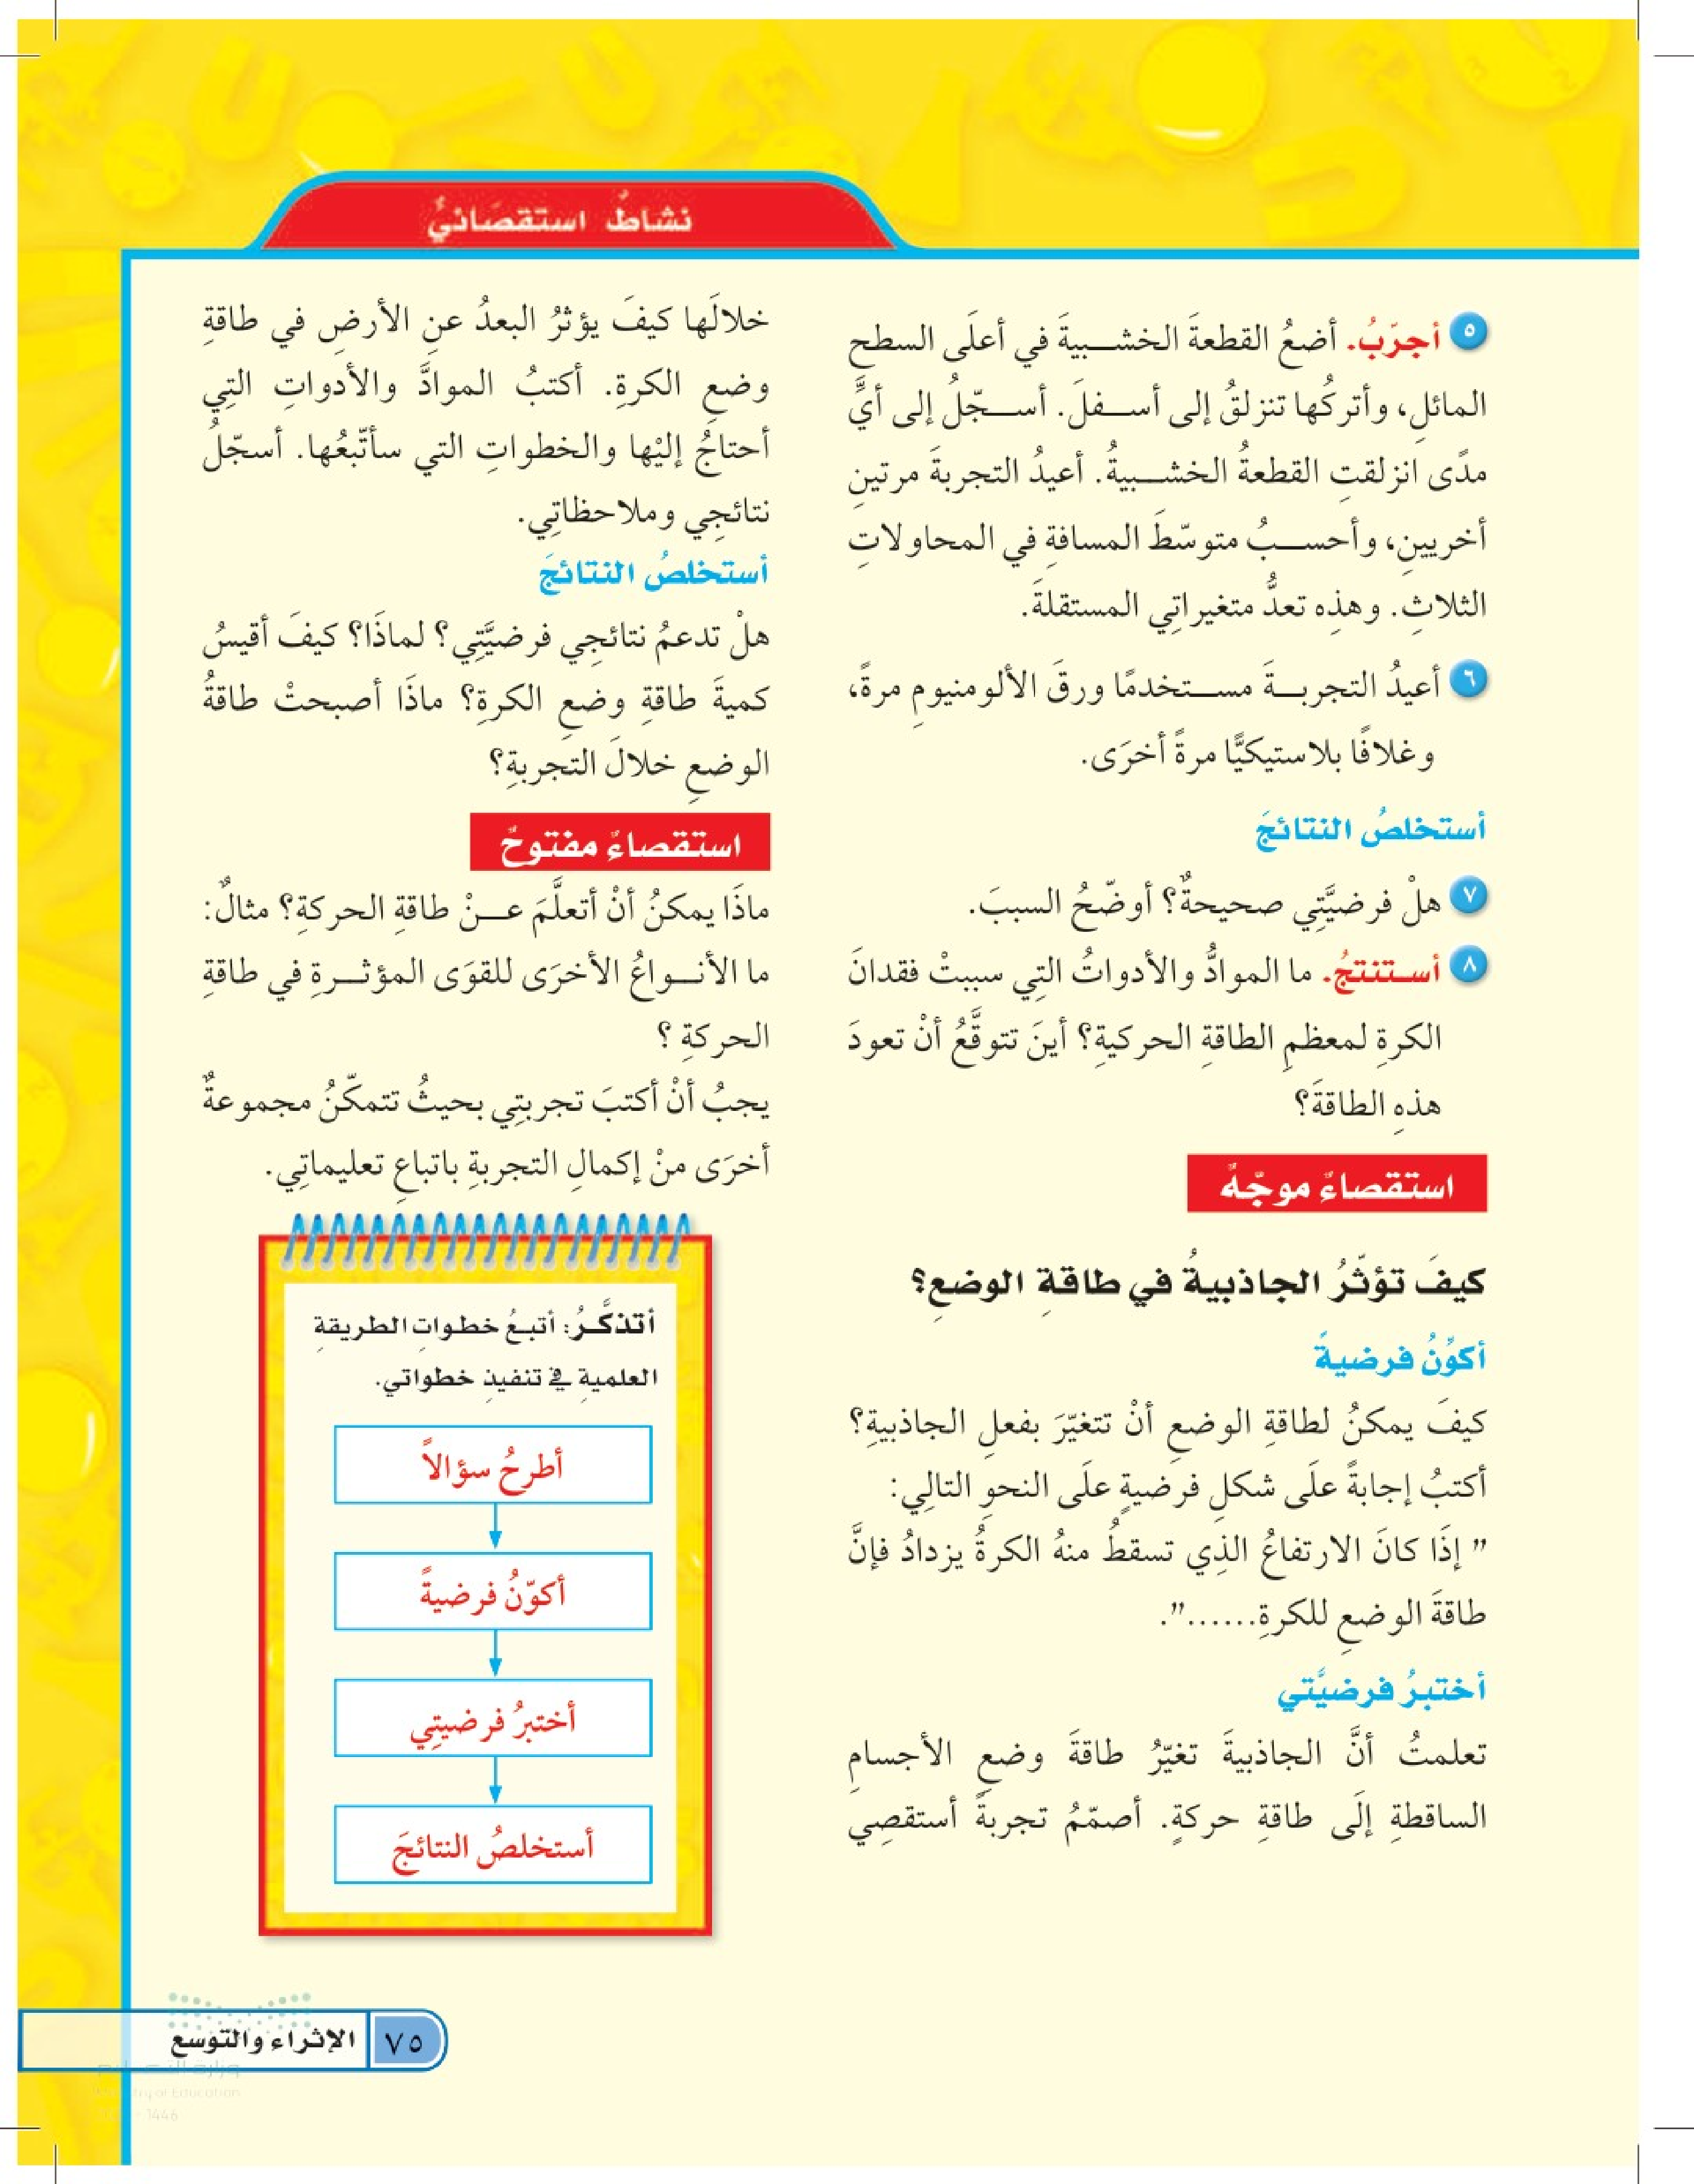 نشاطٌ استقصائيٌّ
٥ أجرّبُ. أضعُ القطعةَ الخشبيةَ في أعلَى السطحِ
المائلِ، وأتركُها تنزلقُ إلى أسفلَ. أسجّلُ إلى أيِّ
مدًى انزلقتِ القطعةُ الخشبيةُ. أعيدُ التجربةَ مرتينِ
أخريينِ، وأحسبُ متوسّطَ المسافةِ في المحاولاتِ
الثلاثِ. وهذِه تعدُّ متغيراتِي المستقلةَ.
٦ أعيدُ التجربةَ مستخدمًا ورقَ الألومنيومِ مرةً،
وغلافًا بلاستيكيًّا مرةً أخرَى.
أستخلصُ النتائجَ
٧ هلْ فرضيَّتِي صحيحةٌ؟ أوضّحُ السببَ.
٨ أستنتجُ. ما الموادُّ والأدواتُ التِي سببتْ فقدانَ
الكرةِ لمعظمِ الطاقةِ الحركيةِ؟ أينَ تتوقَّعُ أنْ تعودَ
هذهِ الطاقةَ؟
استقصاءٌ موجّهٌ
كيفَ تؤثّرُ الجاذبيةُ في طاقةِ الوضعِ؟
أكوّنُ فرضيةً
كيفَ يمكنُ لطاقةِ الوضعِ أنْ تتغيّرَ بفعلِ الجاذبيةِ؟
أكتبُ إجابةً علَى شكلِ فرضيةٍ علَى النحوِ التالِي:
" إذَا كانَ الارتفاعُ الذِي تسقطُ منهُ الكرةُ يزدادُ فإنَّ
طاقةَ الوضعِ للكرةِ......".
أختبرُ فرضيَّتي
تعلمتُ أنَّ الجاذبيةَ تغيّرُ طاقةَ وضعِ الأجسامِ
الساقطةِ إلَى طاقةِ حركةٍ. أصمّمُ تجربةً أستقصِي
خلالَها كيفَ يؤثرُ البعدُ عنِ الأرضِ في طاقةِ
وضعِ الكرةِ. أكتبُ الموادَّ والأدواتِ التِي
أحتاجُ إليْها والخطواتِ التي سأتّبعُها. أسجّلُ
نتائجِي وملاحظاتِي.
أستخلصُ النتائجَ
هلْ تدعمُ نتائجِي فرضيَّتِي؟ لماذَا؟ كيفَ أقيسُ
كميةَ طاقةِ وضعِ الكرةِ؟ ماذَا أصبحتْ طاقةُ
الوضعِ خلالَ التجربةِ؟
استقصاءٌ مفتوحٌ
ماذَا يمكنُ أنْ أتعلَّمَ عنْ طاقةِ الحركةِ؟ مثالٌ:
ما الأنواعُ الأخرَى للقوَى المؤثرةِ في طاقةِ
الحركةِ ؟
يجبُ أنْ أكتبَ تجربتِي بحيثُ تتمكّنُ مجموعةٌ
أخرَى منْ إكمالِ التجربةِ باتباعِ تعليماتِي.
أتذكَّرُ: أتبعُ خطواتِ الطريقةِ
العلميةِ في تنفيذِ خطواتي.
أطرحُ سؤالاً
أكوّنُ فرضيةً
أختبرُ فرضيتِي
أستخلصُ النتائجَ
٧٥ الإثراء والتوسع
وزارة التعليم
Ministry of Education
1446